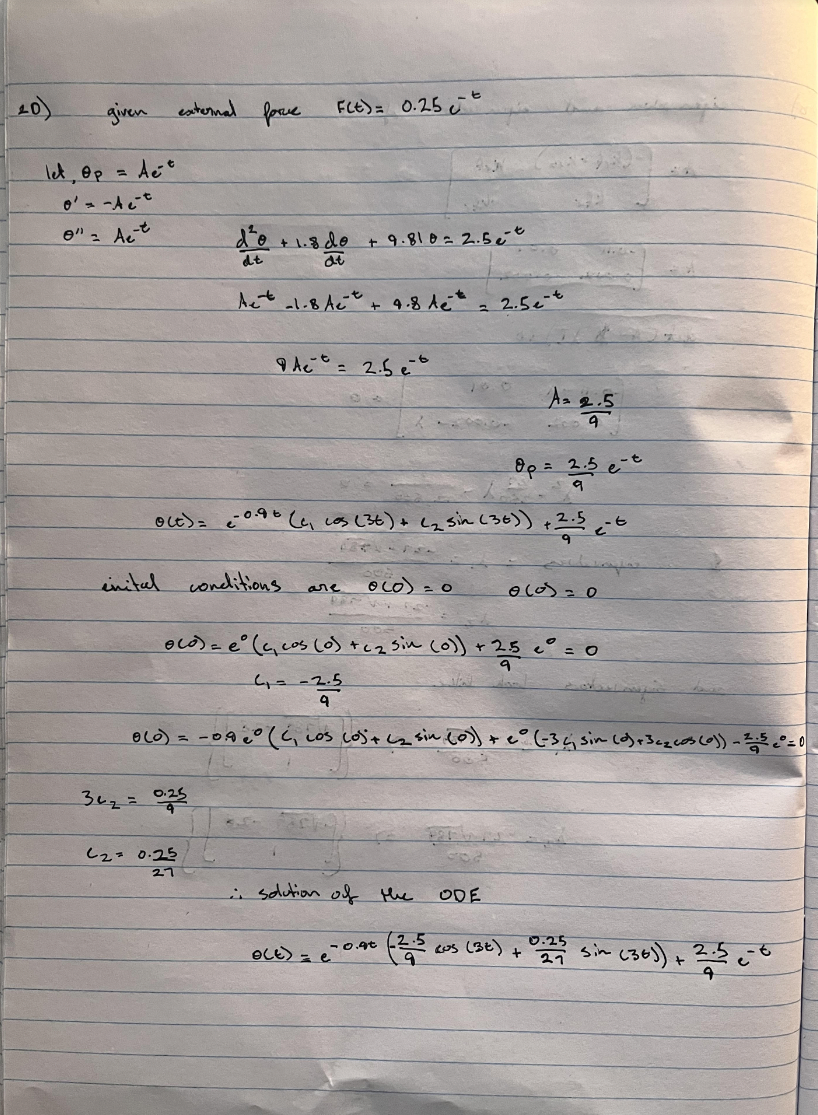 2D) given external force F(t) = 0.25 e^-t
let, θp = Ae^-t
θ' = -Ae^-t
θ'' = Ae^-t
d²θ/dt + 1.8 dθ/dt + 9.81θ = 2.5e^-t
Ae^-t - 1.8Ae^-t + 9.8Ae^-t = 2.5e^-t
9Ae^-t = 2.5e^-t
A = 2.5/9
θp = 2.5/9 e^-t
θ(t) = e^-0.9t (c₁ cos(3t) + c₂ sin(3t)) + 2.5/9 e^-t
inital conditions are θ(0) = 0 θ(0) = 0
θ(0) = e⁰ (c₁ cos(0) + c₂ sin(0)) + 25/9 e⁰ = 0
c₁ = -2.5/9
θ(0) = -0.9e⁰ (c₁ cos(0) + c₂ sin(0)) + e⁰ (-3c₁ sin(0) + 3c₂ cos(0)) - 2.5/9 e⁰ = 0
3c₂ = 0.25/9
c₂ = 0.25/27
∴ solution of the ODE
θ(t) = e^-0.9t (-2.5/9 cos(3t) + 0.25/27 sin(3t)) + 2.5/9 e^-t